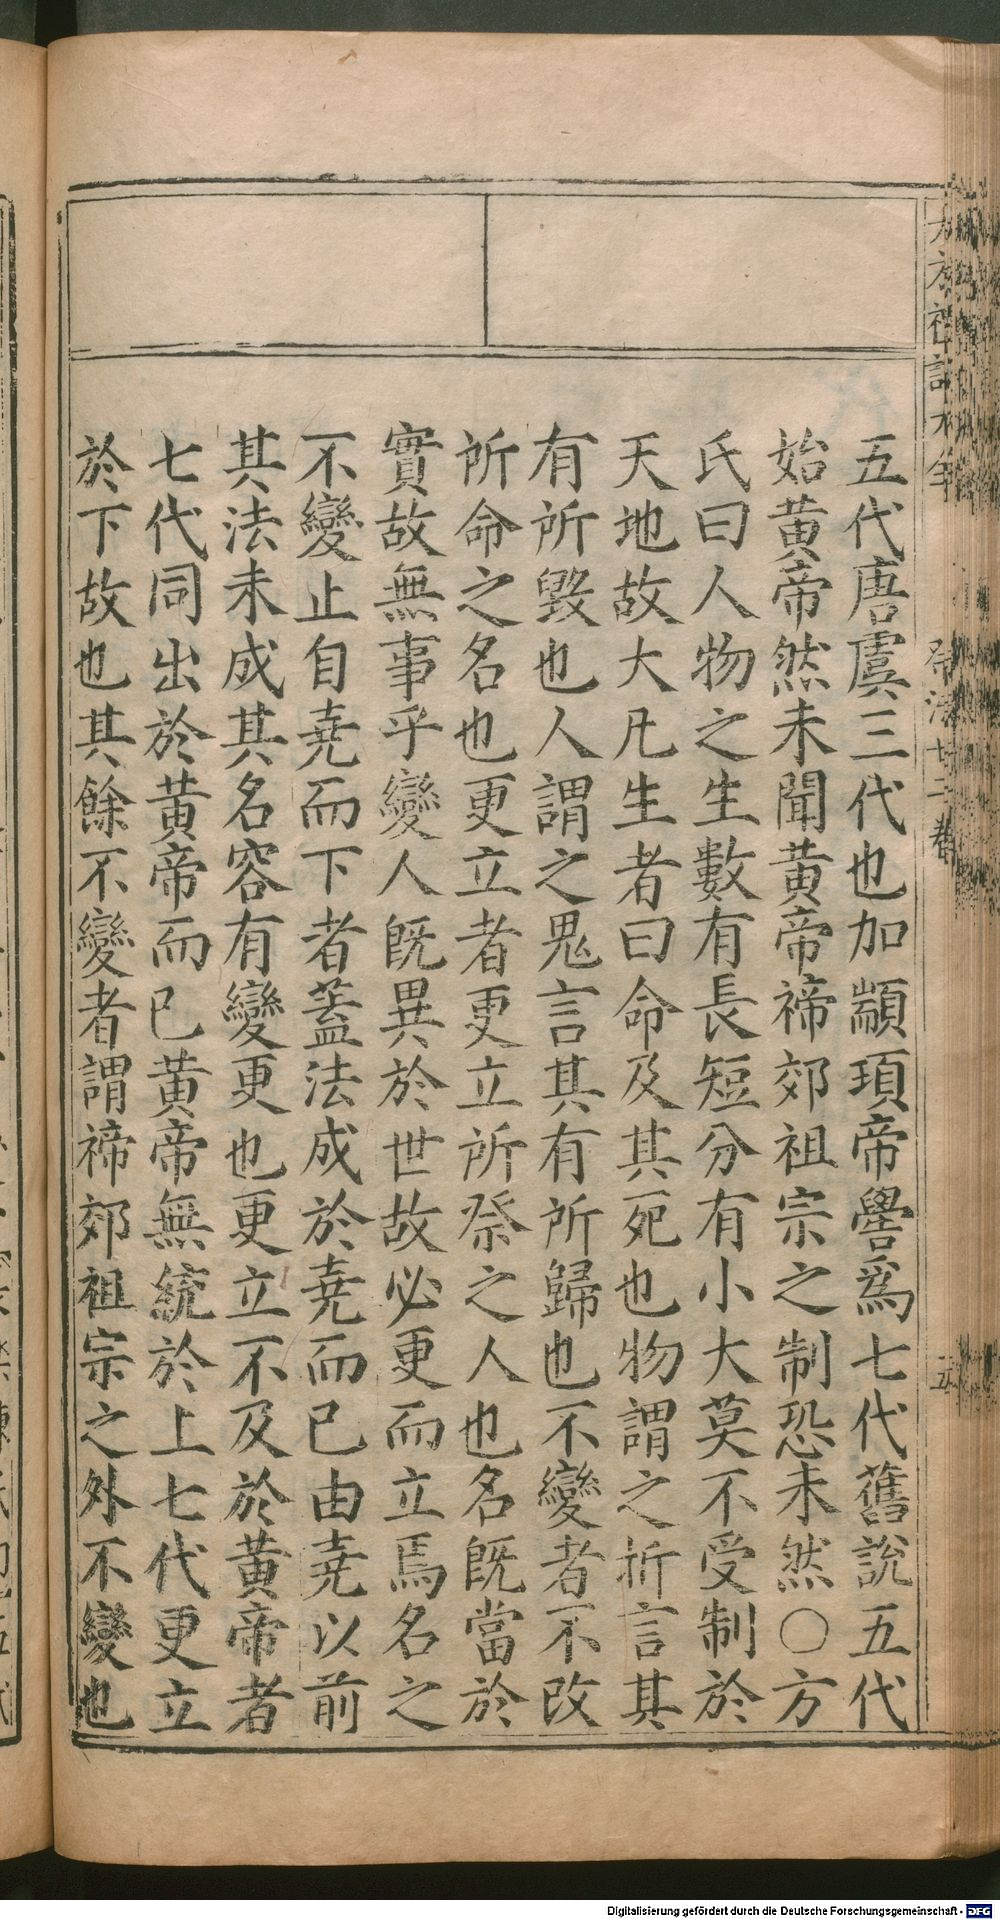 五代唐虞三代也加顓頊帝嚳爲七代舊說五代
始黄帝然未聞黄帝禘郊祖宗之制恐未然○方
氏曰人物之生數有長短分有小大莫不受制於
天地故大凡生者曰命及其死也物謂之折言其
有所毀也人謂之鬼言其有所歸也不變者不改
所命之名也更立者更立所祭之人也名旣當於
實故無事乎變人旣異於世故必更而立焉名之
不變止自堯而下者蓋法成於堯而已由堯以前
其法未成其名容有變更也更立不及於黄帝者
七代同出於黄帝而已黄帝無統於上七代更立
於下故也其餘不變者謂禘郊祖宗之外不變也
祭法廿三卷
五
Digitalisierung gefördert durch die Deutsche Forschungsgemeinschaft - DFG